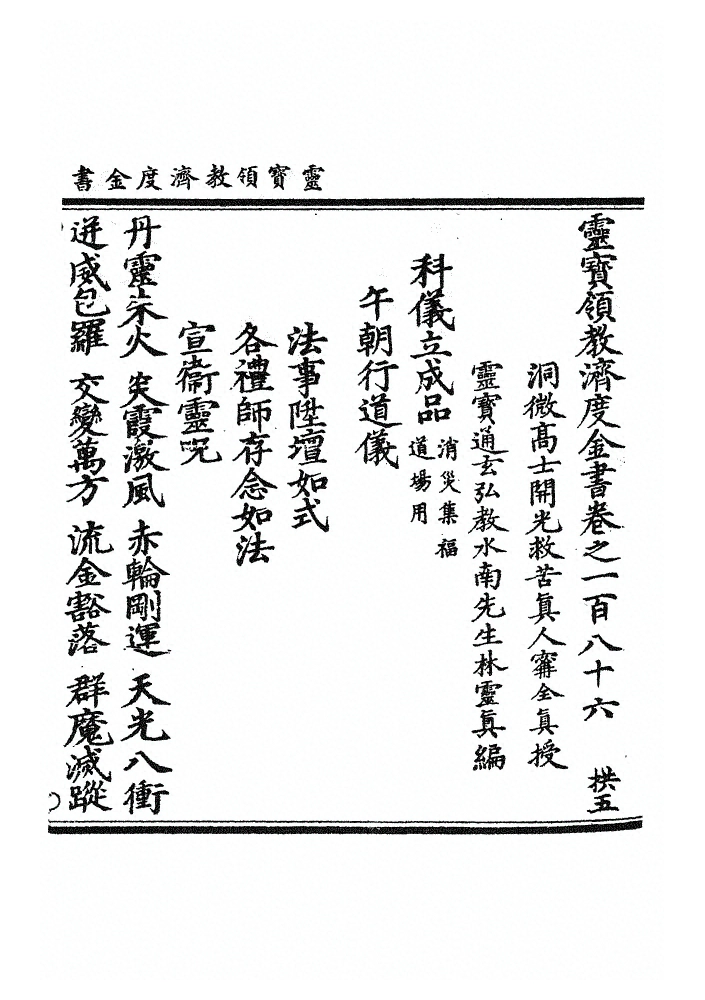 靈寶領教濟度金書
靈寶領教濟度金書卷之一百八十六 拱五
洞微高士開光救苦眞人寗全眞授
靈寶通玄弘教水南先生林靈眞編
科儀立成品 消災集福
道場用
午朝行道儀
法事陞壇如式
各禮師存念如法
宣衞靈呪
丹靈朱火 炎霞激風 赤輪剛運 天光八衝
迸威包羅 交變萬方 流金豁落 群魔滅蹤